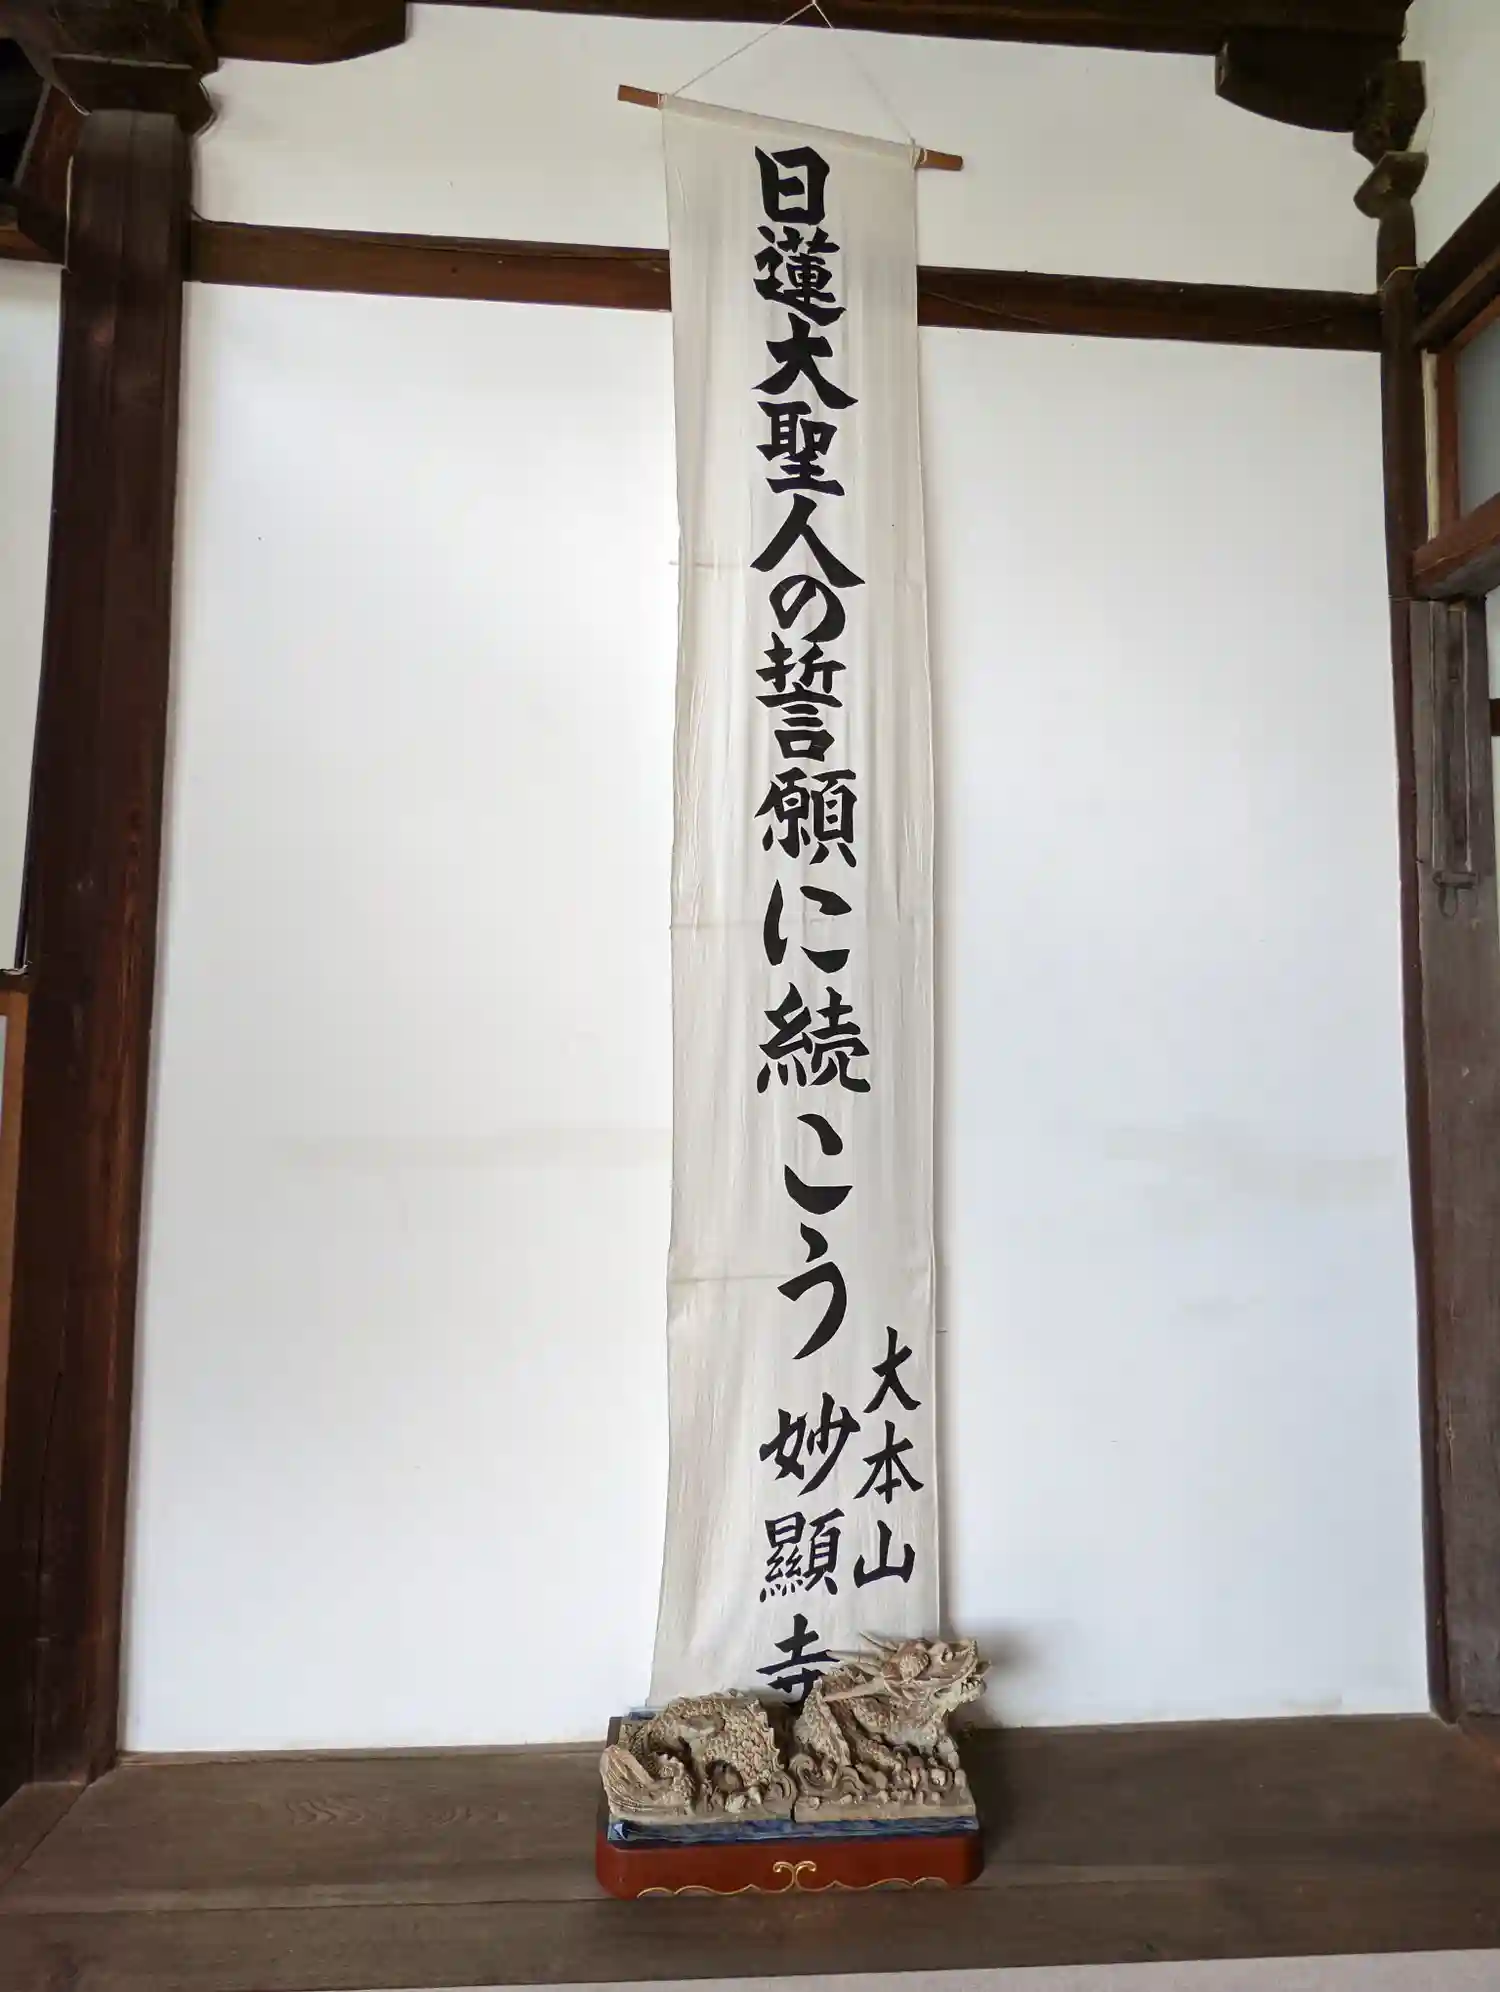 日蓮大聖人の誓願に続こう
大本山
妙顯寺